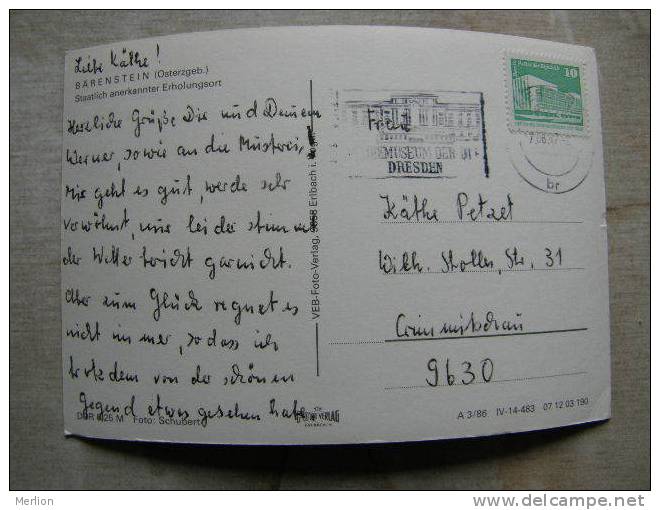 Liebe Käthe!
BÄRENSTEIN (Osterzgeb.)
Staatlich anerkannter Erholungsort
Herzliche Grüße Dir und Deinem
Werner, sowie an die
Mir geht es gut, werde sehr
verwöhnt, nur leider stimmt
der Wetterbericht garnicht.
Aber zum Glück regnet es
nicht immer, so dass ich
trotzdem von der schönen
Gegend etwas gesehen habe.
DDR M Foto: Schubert
VEB-Foto-Verlag, 9658 Erlbach i.
FOTO VERLAG
ERLBACH
10
MUSEUM DER
DRESDEN
br
Frau
Käthe Petzet
Wilh. Stolle, Str. 31
Crimmitschau
9630
A 3/86 IV-14-483 07 12 03 190
Merlion
http://www.delcampe.net